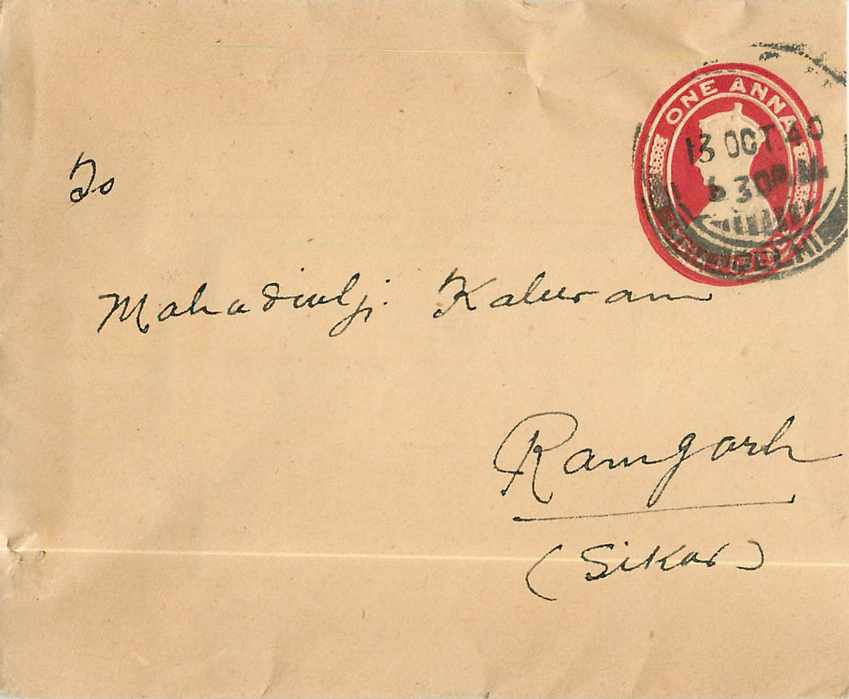 ONE ANNA
13 OCT 40
6 30 P.M.
DELHI
To
Mahadeulji Kaluram
Ramgarh
(Sikar)